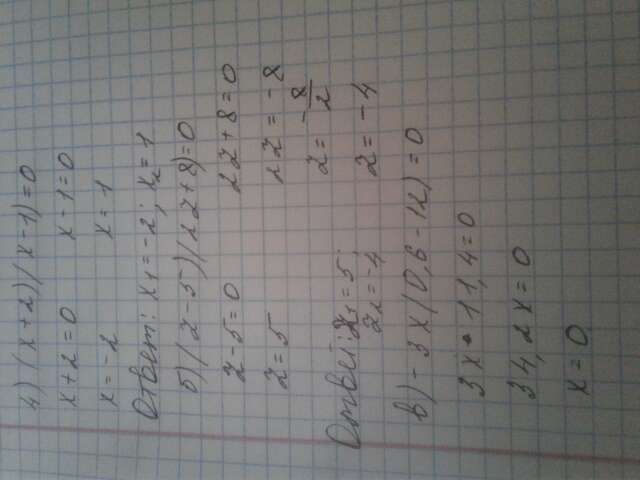 4) (x+2)(x-1)=0
x+2=0 x-1=0
x=-2 x=-1
Ответ: x₁=-2; x₂=1
5) (z-5)(2z+8)=0
z-5=0 2z+8=0
z=5 2z=-8
z=-8/2
z=-4
Ответ: z₁=5;
z₂=-4
в) -3x(0,6-12)=0
3x•11,4=0
34,2x=0
x=0